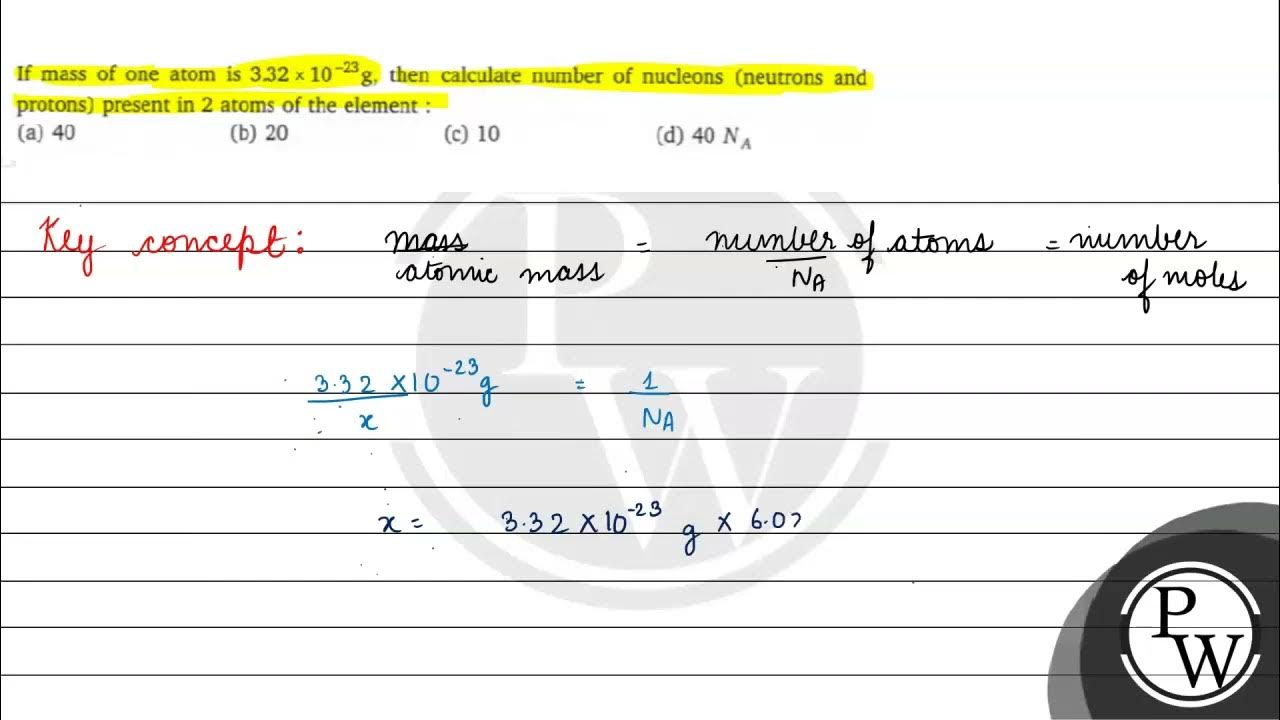 If mass of one atom is 3.32 × 10⁻²³ g, then calculate number of nucleons (neutrons and
protons) present in 2 atoms of the element :
(a) 40 (b) 20 (c) 10 (d) 40 N_A
Key concept: mass / atomic mass = number of atoms / N_A = number of moles
3.32 × 10⁻²³ g / x = 1 / N_A
x = 3.32 × 10⁻²³ g × 6.02
P W
P W